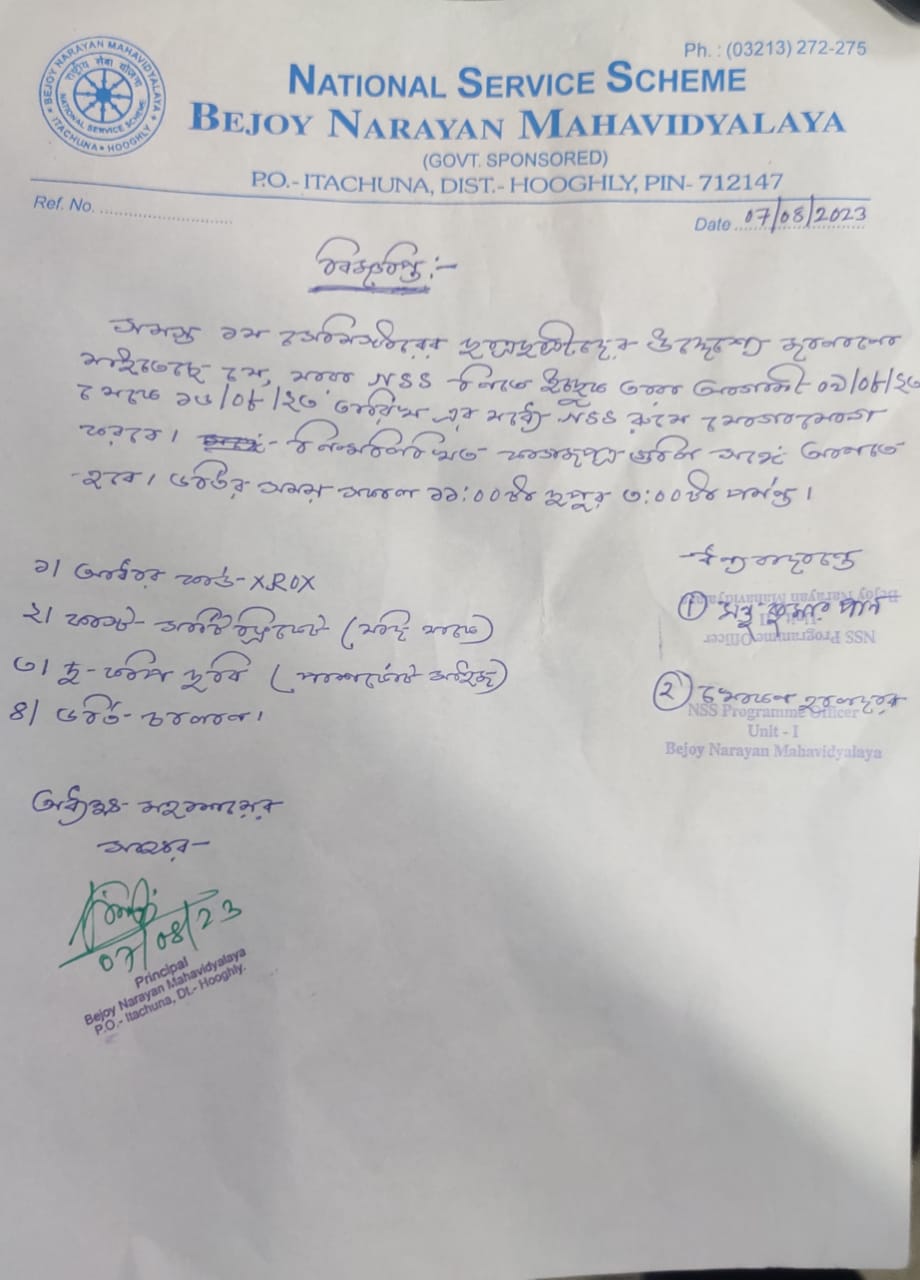 BEJOY NARAYAN MAHAVIDYALAYA
राष्ट्रीय सेवा योजना
NATIONAL SERVICE SCHEME
ITACHUNA • HOOGHLY
Ph. : (03213) 272-275
NATIONAL SERVICE SCHEME
BEJOY NARAYAN MAHAVIDYALAYA
(GOVT. SPONSORED)
P.O.- ITACHUNA, DIST.- HOOGHLY, PIN- 712147
Ref. No.
Date 07/08/2023
বিজ্ঞপ্তি:-
সমস্ত ১ম সেমিস্টারের ছাত্রছাত্রীদের উদ্দেশ্যে জানানো
যাইতেছে যে, যারা NSS নিতে ইচ্ছুক তারা আগামী ০৯/০৮/২৩
থেকে ১৬/০৮/২৩ তারিখ এর মধ্যে NSS রুমে যোগাযোগ
করবে। নিম্নলিখিত কাগজপত্র গুলি সঙ্গে আনতে
হবে। ভর্তির সময় সকাল ১১:০০টা দুপুর ৩:০০টা পর্যন্ত।
১। আধার কার্ড-XROX
২। কাস্ট সার্টিফিকেট (যদি থাকে)
৩। দু-কপি ছবি (পাসপোর্ট সাইজ)
৪। ভর্তি চালান।
ধন্যবাদান্তে
① সন্তু কুমার পাল
Bejoy Narayan Mahavidyalaya
NSS Programme Officer
②
হালদার
NSS Programme Officer
Unit - I
Bejoy Narayan Mahavidyalaya
অধ্যক্ষ মহাশয়ের
সাক্ষর-
07/08/23
Principal
Bejoy Narayan Mahavidyalaya
P.O.- Itachuna, Dt.- Hooghly.